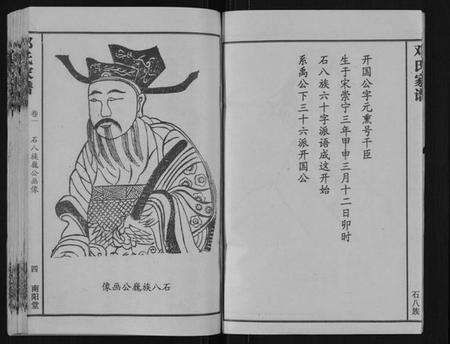 邓氏家谱
开国公字元熏号干臣
生于宋崇宁三年甲申三月十二日卯时
石八族六十字派语成这开始
系禹公下三十六派开国公
石八族
邓氏家谱
卷一
石八族巍公画像
四
南阳堂
石八族巍公画像